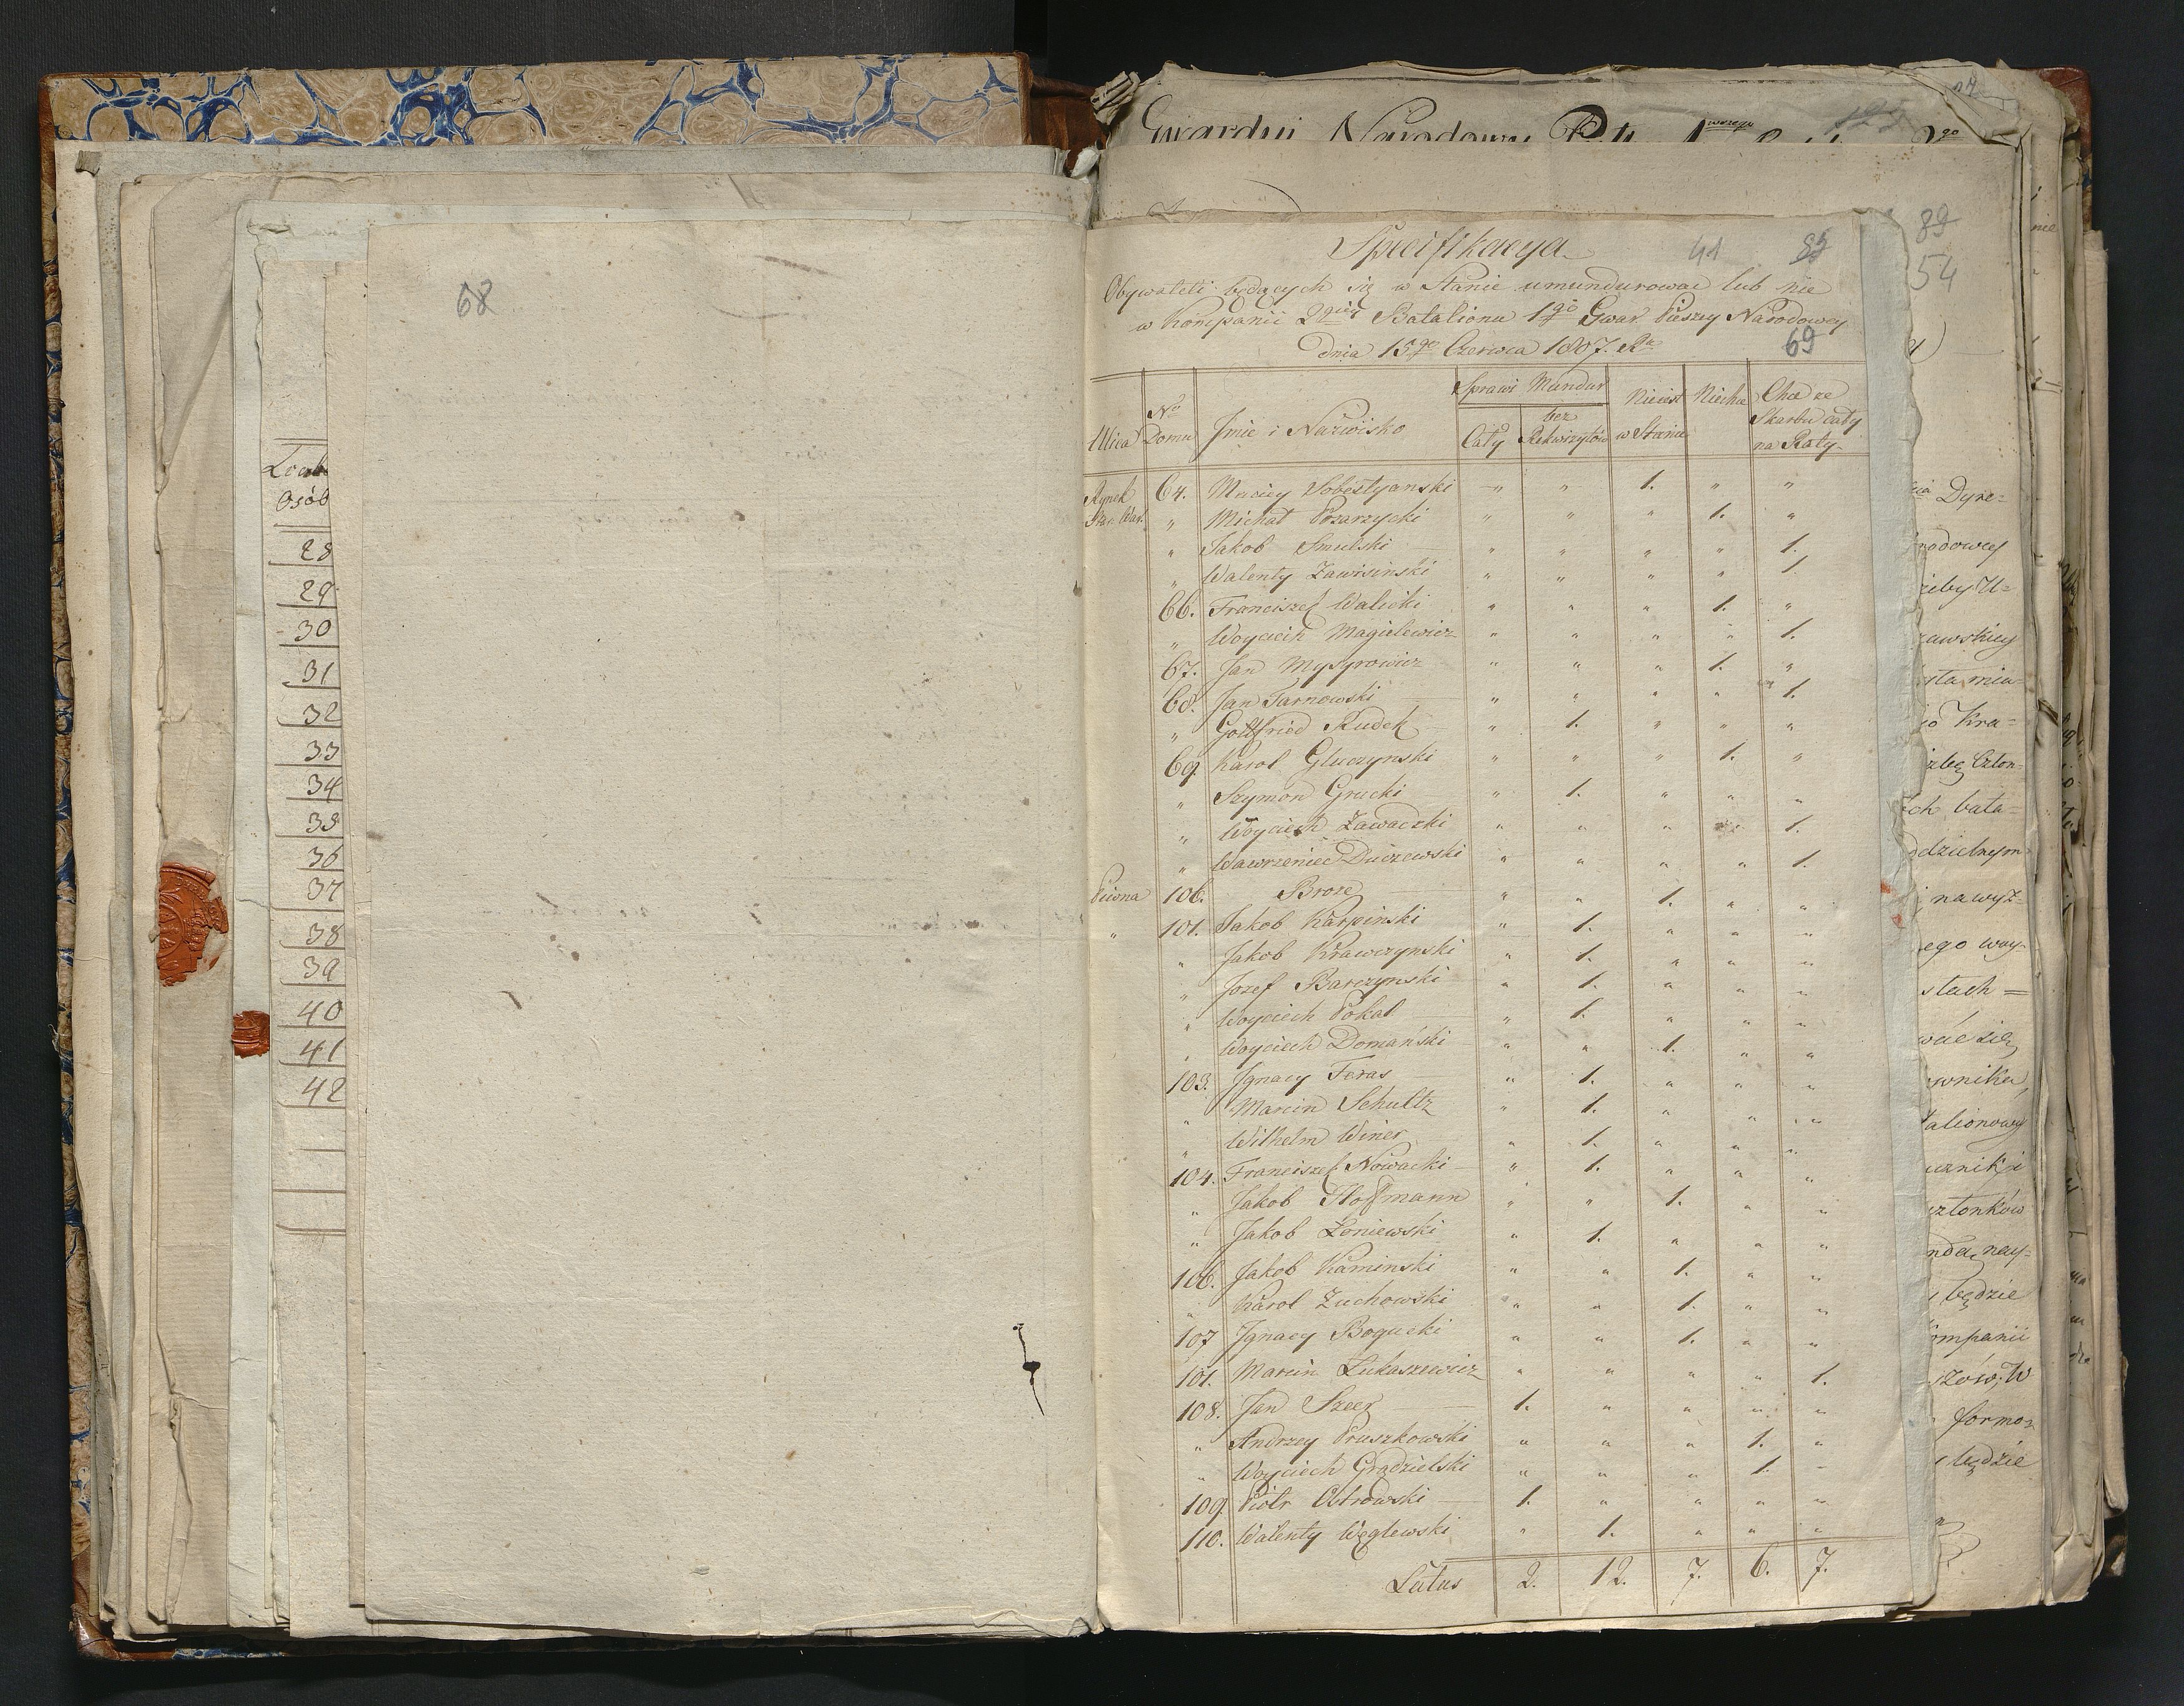 68
Loab
Osób
28
29
30
31
32
33
34
35
36
37
38
39
40
41
42
Gwardyi Narodowy
Specifikacya
41
89
54
69
Obywateli będących się w Stanie umundurować lub nie
w Kompanii 2giey Batalionu 1go Gwar Pieszey Narodowey
dnia 15go Czerwca 1807. Rk
Ulica | No Domu | Jmie i Nazwisko | Sprawi Mundur Cały | bez Rekwizytów | Nieiest w Stanie | Niechce | Chce ze Skarbu cały na Raty
Rynek Star. War. 64. Maciey Sobestyanski " " 1. " "
" Michał Pozarzycki " " " 1. "
" Jakob Smulski " " " " 1.
" Walenty Zawisinski " " " " 1.
66. Franciszek Walicki " " " 1. "
" Woyciech Magielewicz " " " " 1.
67. Jan Mysyrowicz " " " 1. "
68. Jan Tarnowski " " " " 1.
" Gottfried Rudek " 1. " " "
69. Karol Gluczynski " " " 1. "
" Szymon Grucki " 1. " " "
" Woyciech Zawadzki " " " " 1.
" Wawrzeniec Duczewski " " " " 1.
Piwna 106. Broze " " 1. " "
" 101. Jakob Karpinski " 1. " " "
" Jakob Krawczynski " 1. " " "
" Jozef Barczynski " 1. " " "
" Woyciech Pokal " 1. " " "
" Woyciech Domański " " 1. " "
103. Jgnacy Teras " 1. " " "
" Marcin Schultz " 1. " " "
" Wilhelm Winer " 1. " " "
104. Franciszek Nowacki " 1. " " "
" Jakob Hoffmann " " 1. " "
" Jakob Zoniewski " 1. " " "
106. Jakob Kaminski " " 1. " "
" Karol Zuchowski " " 1. " "
107 Jgnacy Bogucki " " 1. " "
101. Marcin Lukaszewicz " " " " 1.
108. Jan Szeer 1. " " " "
" Andrzey Pruszkowski " " " 1. "
" Woyciech Grądzielski " " " 1. "
109. Piotr Ostrowski 1. " " " "
110. Walenty Węglewski " 1. " " "
Latus 2. 12. 7. 6. 7.
Dyre=
rodowey
zawskiey
Kra=
bata=
dzielnym
nawyż=
ego woy=
stach =
wnika,
alionowy
cznik i
członków
będzie
ompanii
formo=
będzie